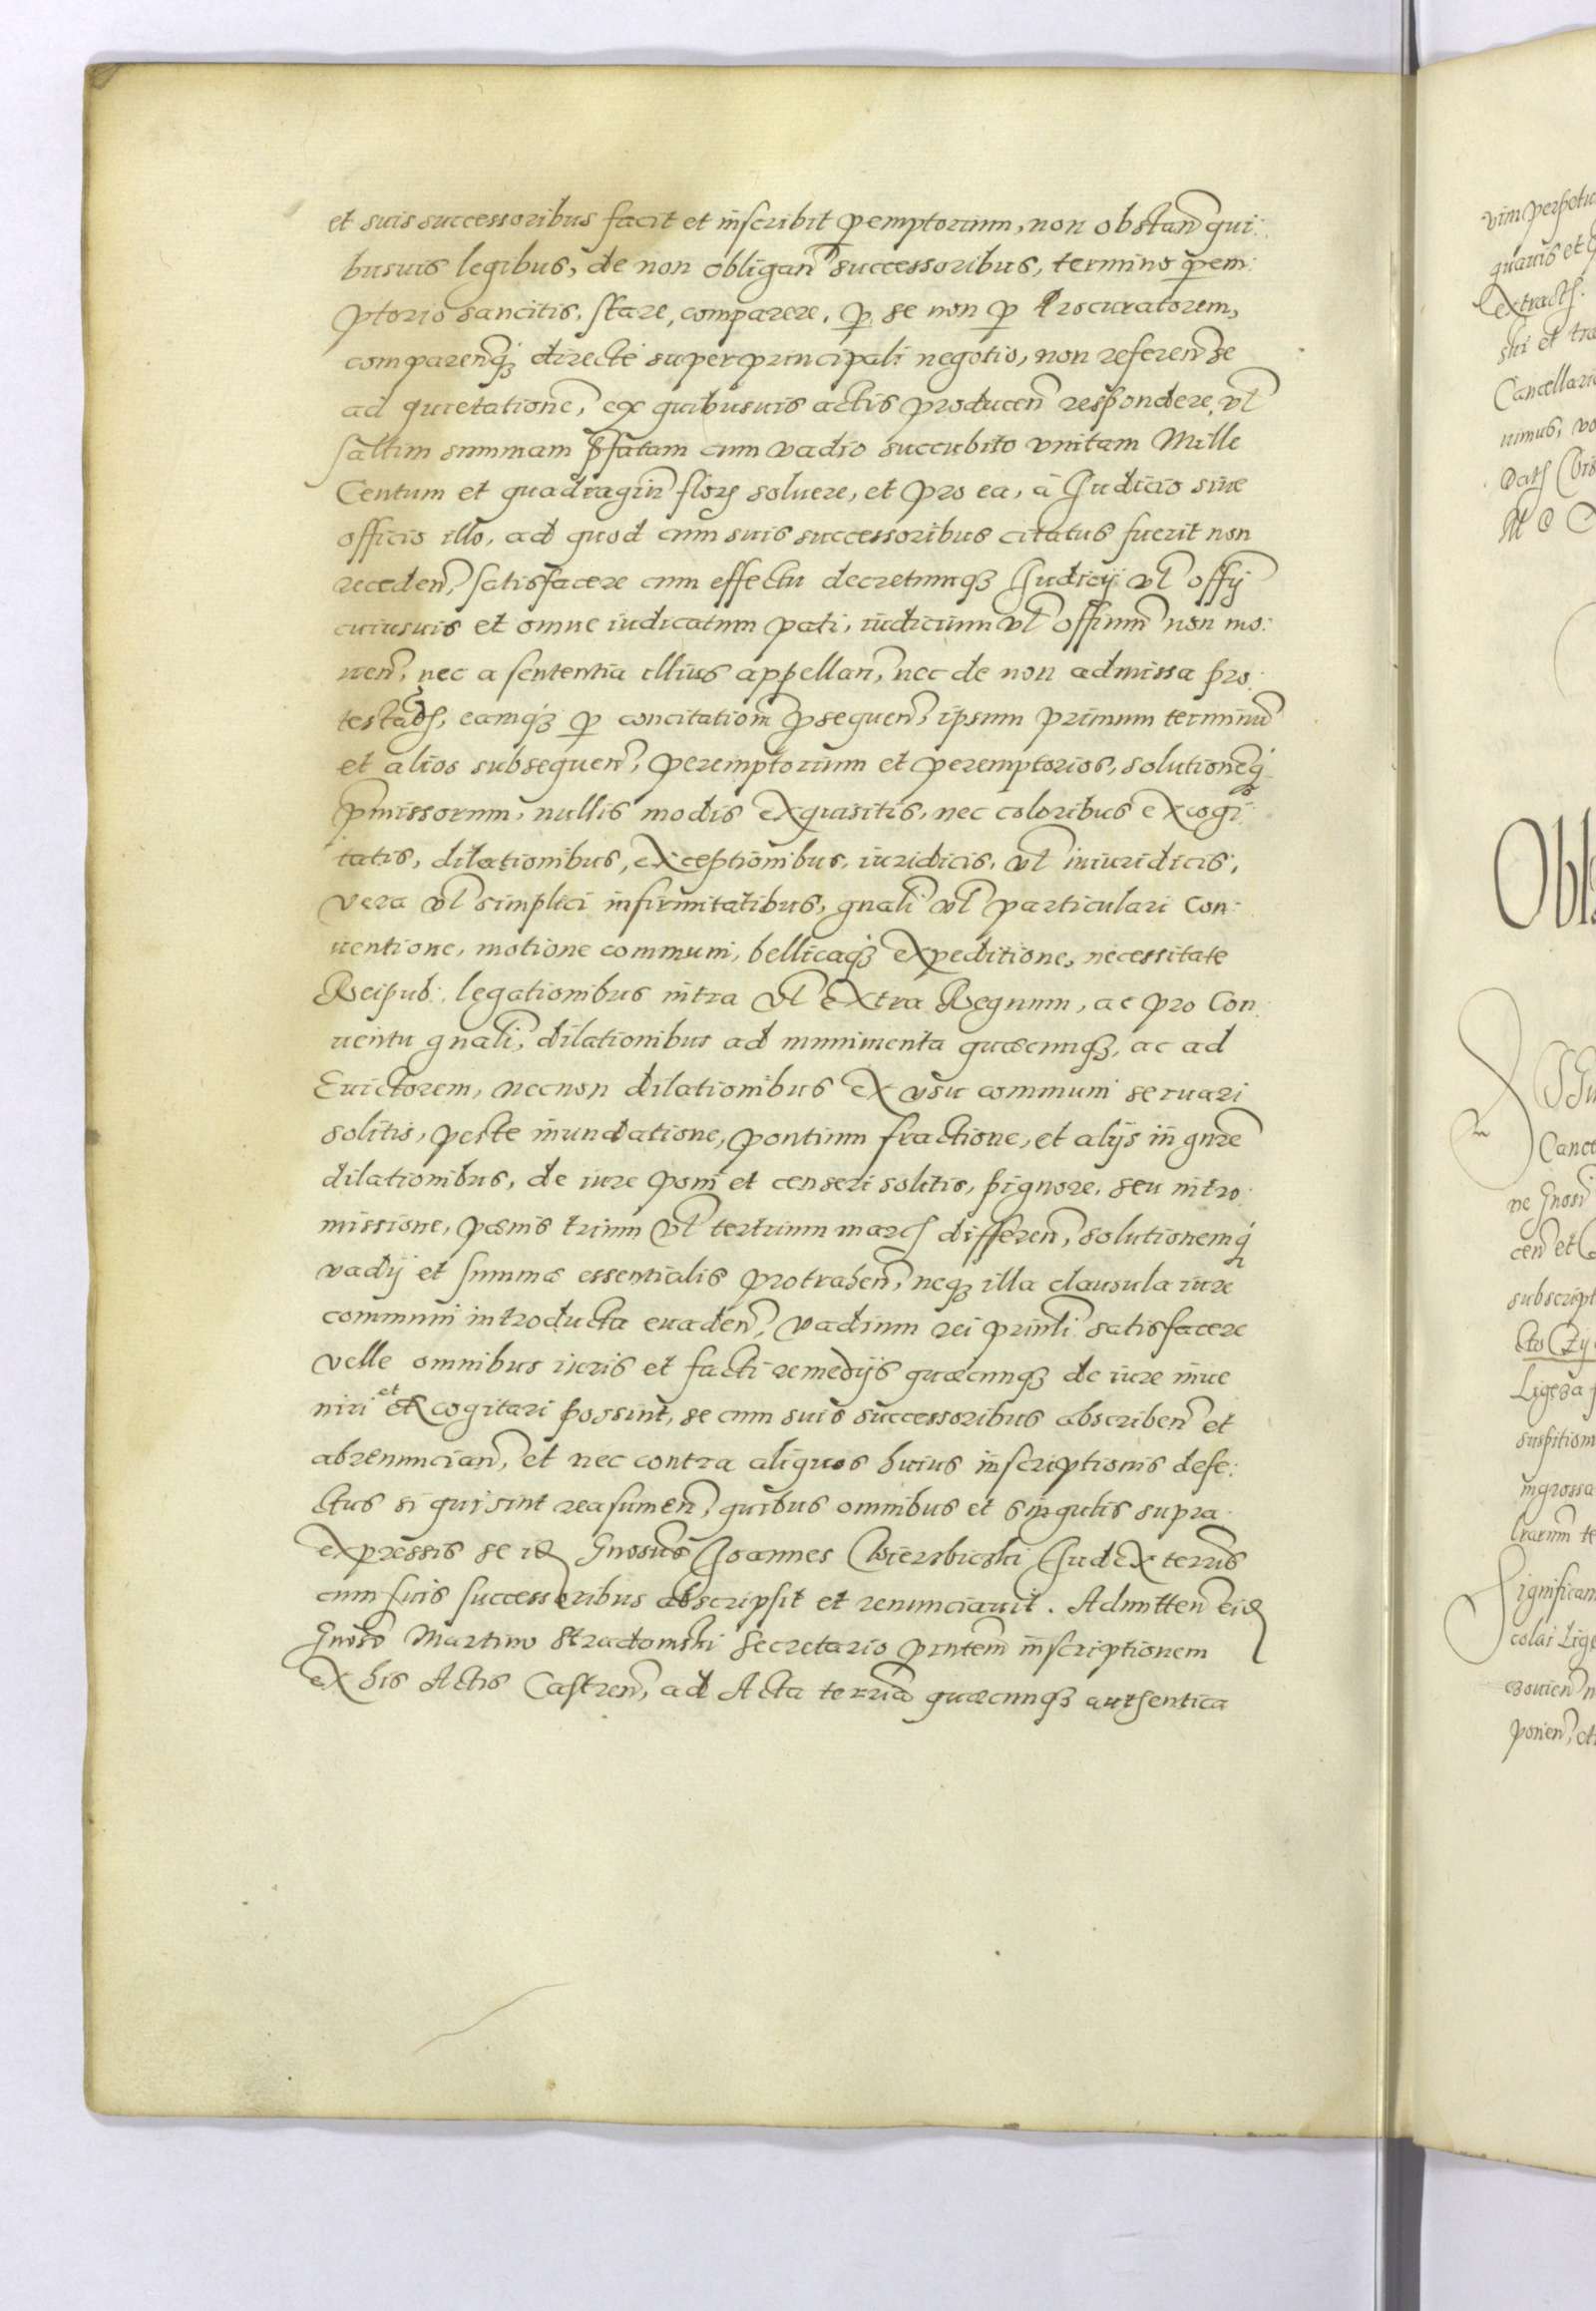 et suis successoribus facit et inscribit pemptorium, non obstan qui:
busuis legibus, de non obligan successoribus, termino pem:
ptorio sancitis, stare, comparere, p se non p Procuratorem,
comparenq3 directe super principali negotio, non referen se
ad quietatione, ex quibusuis actis producen respondere, vl
saltim summam pfatam cum vadio succubito vnitam Mille
Centum et quadragin flor soluere, et pro ea, à Judicio siue
officio illo, ad quod cum suis successoribus citatus fuerit non
receden, satisfacere cum effectu decretumq3 Judicij vl offij
cuiusuis et omne iudicatum pati, iudicium vl offium non mo:
uen, nec a sententia illius appellan, nec de non admissa pro:
testaōe, eamq3 p concitationm psequen, ipsum primum terminu
et alios subsequen, peremptorium et peremptorios, solutioneq
pmissorum, nullis modis exquisitis, nec coloribus excogi:
tatis, dilationibus, exceptionibus, iuridicis, vl iniuridicis,
vera vl simplici infirmitatibus, gnali vl particulari Con:
uentione, motione communi, bellicaq3 expeditione, necessitate
Reipub: legationibus intra vl extra Regnum, ac pro Con:
uentu gnali, dilationibus ad munimenta quaecunq3, ac ad
Euictorem, necnon dilationibus ex vsu communi seruari
solitis, peste inundatione, pontium fractione, et alijs in gnre
dilationibus, de iure poni et censeri solitis, pignore, seu intro:
missione, paenis trium vl tertium march differen, solutionemq
vadij et summae essentialis protrahen, neq3 illa clausula iure
communi introducta euaden, vadium rei prinli satisfacere
velle omnibus iuris et facti remedijs quaecunq3 de iure inue
niri et excogitari possint, se cum suis successoribus abscriben et
abrenuncian, et nec contra aliquos huius inscriptionis defe:
ctus si qui sint reasumen, quibus omnibus et singulis supra
expressis se id Gnosus Joannes Wierzbicski Judex terris
cum suis successoribus abscripsit et renunciauit. Admitten eid
Gnoso Martino Stradomski Secretario pntem inscriptionem
ex his Actis Castren, ad Acta terria quaecunq3 authentica
vim perpetu
Extract
ski et tra
Cancellari
nimus, vo
Obl
Canc
ne Gnosi
cen et
subscript
cto Czy
Ligeza
suspition
ingrossa
Significam
colai Lige
ponen, et